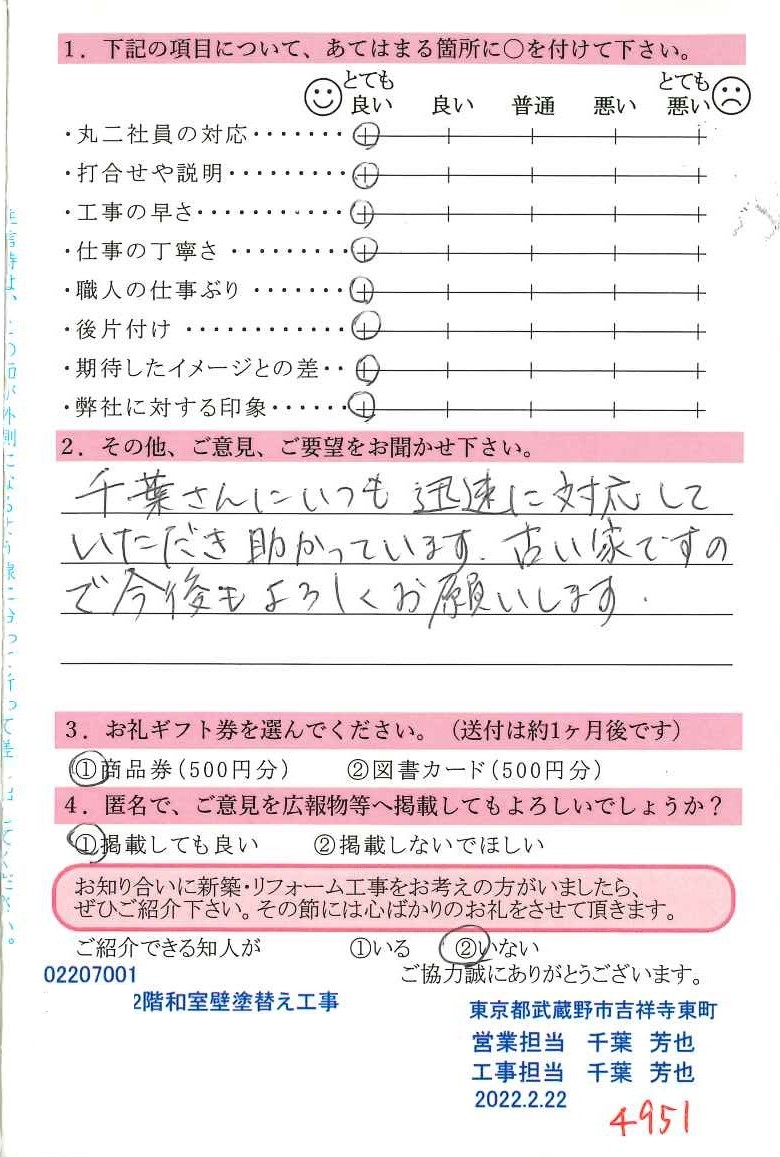 1．下記の項目について、あてはまる箇所に○を付けて下さい。
とても良い 良い 普通 悪い とても悪い
・丸二社員の対応・・・・・・・
・打合せや説明・・・・・・・・・
・工事の早さ・・・・・・・・・・・
・仕事の丁寧さ・・・・・・・・・
・職人の仕事ぶり・・・・・・・
・後片付け・・・・・・・・・・・・
・期待したイメージとの差・・
・弊社に対する印象・・・・・・
2．その他、ご意見、ご要望をお聞かせ下さい。
千葉さんにいつも迅速に対応して
いただき助かっています。古い家ですの
で今後もよろしくお願いします。
3．お礼ギフト券を選んでください。（送付は約1ヶ月後です）
①商品券（500円分） ②図書カード（500円分）
4．匿名で、ご意見を広報物等へ掲載してもよろしいでしょうか？
①掲載しても良い ②掲載しないでほしい
お知り合いに新築・リフォーム工事をお考えの方がいましたら、
ぜひご紹介下さい。その節には心ばかりのお礼をさせて頂きます。
ご紹介できる知人が ①いる ②いない
ご協力誠にありがとうございます。
02207001
2階和室壁塗替え工事
東京都武蔵野市吉祥寺東町
営業担当 千葉 芳也
工事担当 千葉 芳也
2022.2.22
4951